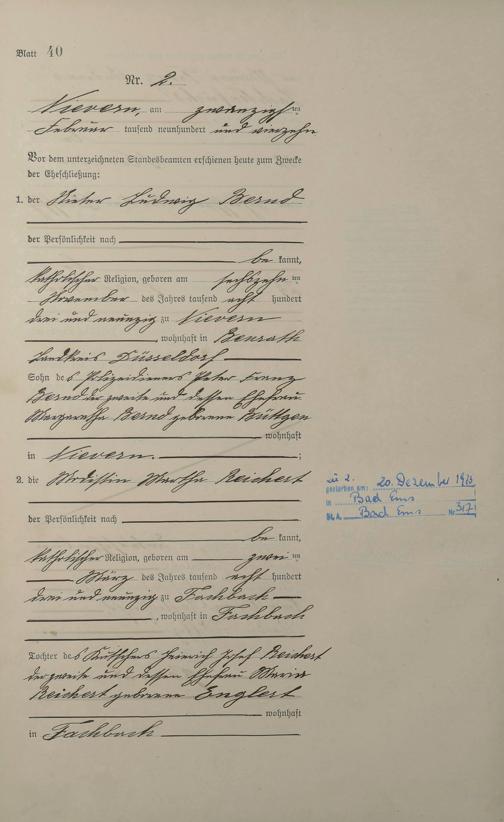 Blatt 40
Nr. 2.
Nievern, am zwanzigsten
Februar tausend neunhundert und vierzehn
Vor dem unterzeichneten Standesbeamten erschienen heute zum Zwecke
der Eheschließung:
1. der Ludwig Bernd
der Persönlichkeit nach
be kannt,
katholischer Religion, geboren am sechszehnten
November des Jahres tausend acht hundert
drei und neunzig zu Nievern
, wohnhaft in Benrath
Landkreis Düsseldorf
Sohn des Polizeidieners Peter Franz
Bernd der zweite und dessen Ehefrau
Margaretha Bernd geborene Büttgen
wohnhaft
in Nievern. ;
2. die Modistin Martha Reichert
der Persönlichkeit nach
be kannt,
katholischer Religion, geboren am zweiten
März des Jahres tausend acht hundert
drei und neunzig zu Fachbach
, wohnhaft in Fachbach
Tochter des Kutschers Heinrich Josef Reichert
der zweite und dessen Ehefrau Maria
Reichert geborene Englert
wohnhaft
in Fachbach
zu 2.
gestorben am: 20. Dezember
in Bad Ems
St.A. Bad Ems Nr.